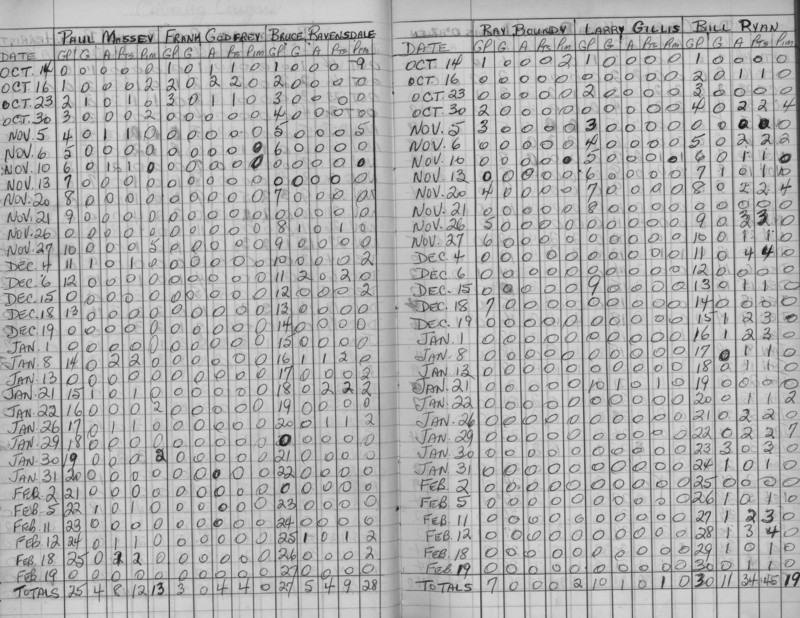 PAUL MASSEY FRANK GODFREY BRUCE RAVENSDALE
DATE GP G A Pts Pim GP G A Pts Pim GP G A Pts Pim
OCT. 14 0 0 0 0 0 1 0 1 1 0 1 0 0 0 9
OCT. 16 1 0 0 0 2 2 0 2 2 0 2 0 0 0 0
OCT. 23 2 1 0 1 0 3 0 1 1 0 3 0 0 0 0
OCT. 30 3 0 0 0 2 0 0 0 0 0 4 0 0 0 0
NOV. 5 4 0 1 1 0 0 0 0 0 0 5 0 0 0 5
NOV. 6 5 0 0 0 0 0 0 0 0 0 6 0 0 0 0
NOV. 10 6 0 1 1 0 0 0 0 0 0 0 0 0 0 0
NOV. 13 7 0 0 0 0 0 0 0 0 0 0 0 0 0 0
NOV. 20 8 0 0 0 0 0 0 0 0 0 7 0 0 0 0
NOV. 21 9 0 0 0 0 0 0 0 0 0 0 0 0 0 0
NOV. 26 0 0 0 0 0 0 0 0 0 0 8 1 0 1 0
NOV. 27 10 0 0 0 5 0 0 0 0 0 9 0 0 0 0
DEC. 4 11 1 0 1 0 0 0 0 0 0 10 0 0 0 2
DEC. 6 12 0 0 0 0 0 0 0 0 0 11 2 0 2 0
DEC. 15 0 0 0 0 0 0 0 0 0 0 12 0 0 0 2
DEC. 18 13 0 0 0 0 0 0 0 0 0 13 0 0 0 0
DEC. 19 0 0 0 0 0 0 0 0 0 0 14 0 0 0 0
JAN. 1 0 0 0 0 0 0 0 0 0 0 15 0 0 0 0
JAN. 8 14 0 2 2 0 0 0 0 0 0 16 1 1 2 0
JAN. 13 0 0 0 0 0 0 0 0 0 0 17 0 0 0 2
JAN. 21 15 1 0 1 0 0 0 0 0 0 18 0 2 2 2
JAN. 22 16 0 0 0 2 0 0 0 0 0 19 0 0 0 0
JAN. 26 17 0 1 1 0 0 0 0 0 0 20 0 1 1 2
JAN. 29 18 0 0 0 0 0 0 0 0 0 0 0 0 0 0
JAN. 30 19 0 0 0 2 0 0 0 0 0 21 0 0 0 0
JAN. 31 20 0 0 0 0 0 0 0 0 0 22 0 0 0 0
FEB. 2 21 0 0 0 0 0 0 0 0 0 0 0 0 0 0
FEB. 5 22 1 0 1 0 0 0 0 0 0 23 0 0 0 0
FEB. 11 23 0 0 0 0 0 0 0 0 0 24 0 0 0 0
FEB. 12 24 0 1 1 0 0 0 0 0 0 25 1 0 1 2
FEB. 18 25 0 2 2 0 0 0 0 0 0 26 0 0 0 2
FEB. 19 0 0 0 0 0 0 0 0 0 0 27 0 0 0 0
TOTALS 25 4 8 12 13 3 0 4 4 0 27 5 4 9 28
RAY BOUNDY LARRY GILLIS BILL RYAN
DATE GP G A Pts Pim GP G A Pts Pim GP G A Pts Pim
OCT 14 1 0 0 0 2 1 0 0 0 0 1 0 0 0 0
OCT. 16 0 0 0 0 0 0 0 0 0 0 2 0 1 1 0
OCT. 23 0 0 0 0 0 2 0 0 0 0 3 0 0 0 0
OCT. 30 2 0 0 0 0 0 0 0 0 0 4 0 2 2 4
NOV. 5 3 0 0 0 0 3 0 0 0 0 0 0 0 0 0
NOV. 6 0 0 0 0 0 4 0 0 0 0 5 0 2 2 2
NOV. 10 0 0 0 0 0 5 0 0 0 0 6 0 1 1 0
NOV. 13 0 0 0 0 0 6 0 0 0 0 7 1 0 1 0
NOV. 20 4 0 0 0 0 7 0 0 0 0 8 0 2 2 4
NOV. 21 0 0 0 0 0 8 0 0 0 0 0 0 0 0 0
NOV. 26 5 0 0 0 0 0 0 0 0 0 9 0 3 3 0
NOV. 27 6 0 0 0 0 0 0 0 0 0 10 0 1 1 0
DEC 4 0 0 0 0 0 0 0 0 0 0 11 0 4 4 0
DEC 6 0 0 0 0 0 0 0 0 0 0 12 0 0 0 0
DEC. 15 0 0 0 0 0 9 0 0 0 0 13 0 1 1 0
DEC. 18 7 0 0 0 0 0 0 0 0 0 14 0 0 0 0
DEC. 19 0 0 0 0 0 0 0 0 0 0 15 1 2 3 0
JAN. 1 0 0 0 0 0 0 0 0 0 0 16 1 2 3 0
JAN. 8 0 0 0 0 0 0 0 0 0 0 17 0 1 1 0
JAN 13 0 0 0 0 0 0 0 0 0 0 18 0 1 1 0
JAN. 21 0 0 0 0 0 10 1 0 1 0 19 0 0 0 0
JAN. 22 0 0 0 0 0 0 0 0 0 0 20 0 1 1 2
JAN. 26 0 0 0 0 0 0 0 0 0 0 21 0 2 2 0
JAN. 29 0 0 0 0 0 0 0 0 0 0 22 0 2 2 7
JAN. 30 0 0 0 0 0 0 0 0 0 0 23 3 0 3 0
JAN. 31 0 0 0 0 0 0 0 0 0 0 24 1 0 1 0
FEB. 2 0 0 0 0 0 0 0 0 0 0 25 0 0 0 0
FEB. 5 0 0 0 0 0 0 0 0 0 0 26 1 0 1 0
FEB. 11 0 0 0 0 0 0 0 0 0 0 27 1 2 3 0
FEB. 12 0 0 0 0 0 0 0 0 0 0 28 1 3 4 0
FEB. 18 0 0 0 0 0 0 0 0 0 0 29 1 0 1 0
FEB. 19 0 0 0 0 0 0 0 0 0 0 30 0 1 1 0
TOTALS 7 0 0 0 2 10 1 0 1 0 30 11 34 45 19